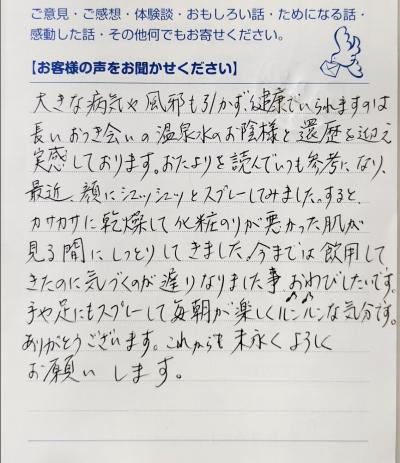 ご意見・ご感想・体験談・おもしろい話・ためになる話・
感動した話・その他何でもお寄せください。
【お客様の声をお聞かせください】
大きな病気や風邪も引かず、健康でいられますのは
長いおつき合いの温泉水のお陰様と還歴を迎え
実感しております。おたよりを読んでいつも参考になり、
最近、顔にシュッシュッとスプレーしてみました。すると、
カサカサに乾燥して化粧のりが悪かった肌が
見る間にしっとりしてきました。今までは飲用して
きたのに気づくのが遅りなりました事、おわびしたいです。
手や足にもスプレーして毎朝が楽しくルンルンな気分です。
ありがとうございます。これからも末永くよろしく
お願いします。